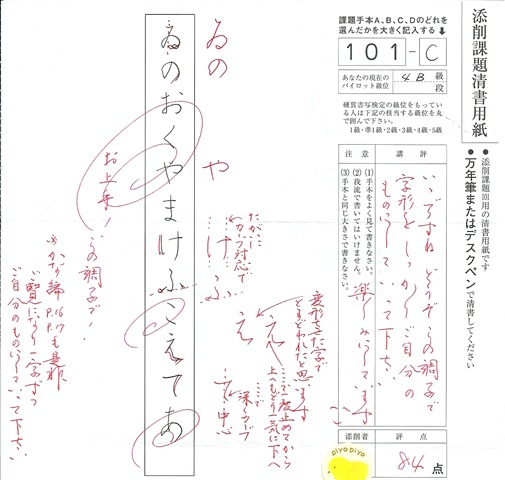 添削課題清書用紙
● 添削課題100用の清書用紙です
● 万年筆またはデスクペンで清書してください
課題手本A、B、C、Dのどれを
選んだかを大きく記入する
101-C
あなたの現在の
パイロット級位
4.B 級
段
硬質書写検定の級位をもっている
人は下記の核当する級位を丸
で囲んで下さい。
1級・準1級・2級・3級・4級・5級
注意
(1) 手本をよく見て書きなさい。
(2) 我流で書いてはいけません。
(3) 手本と同じ大きさで書きなさい。
講評
いいですね どうぞこの調子で
字形をしっかりご自分の
ものにしていって下さい
楽しみにしています
添削者
評点
piyo piyo
84点
ゐの や
けふ
え
ゐのおくやまけふこえてあ
お上手!この調子で!
カーブ対応で
変形させた字で
とまどわれたと思います
一度止めてから
上へもどり一気に下へ
深くカーブ
中心
※かな編 P.16.17も是非
ご覧になり一字ずつ
ご自分のものにしていって下さい